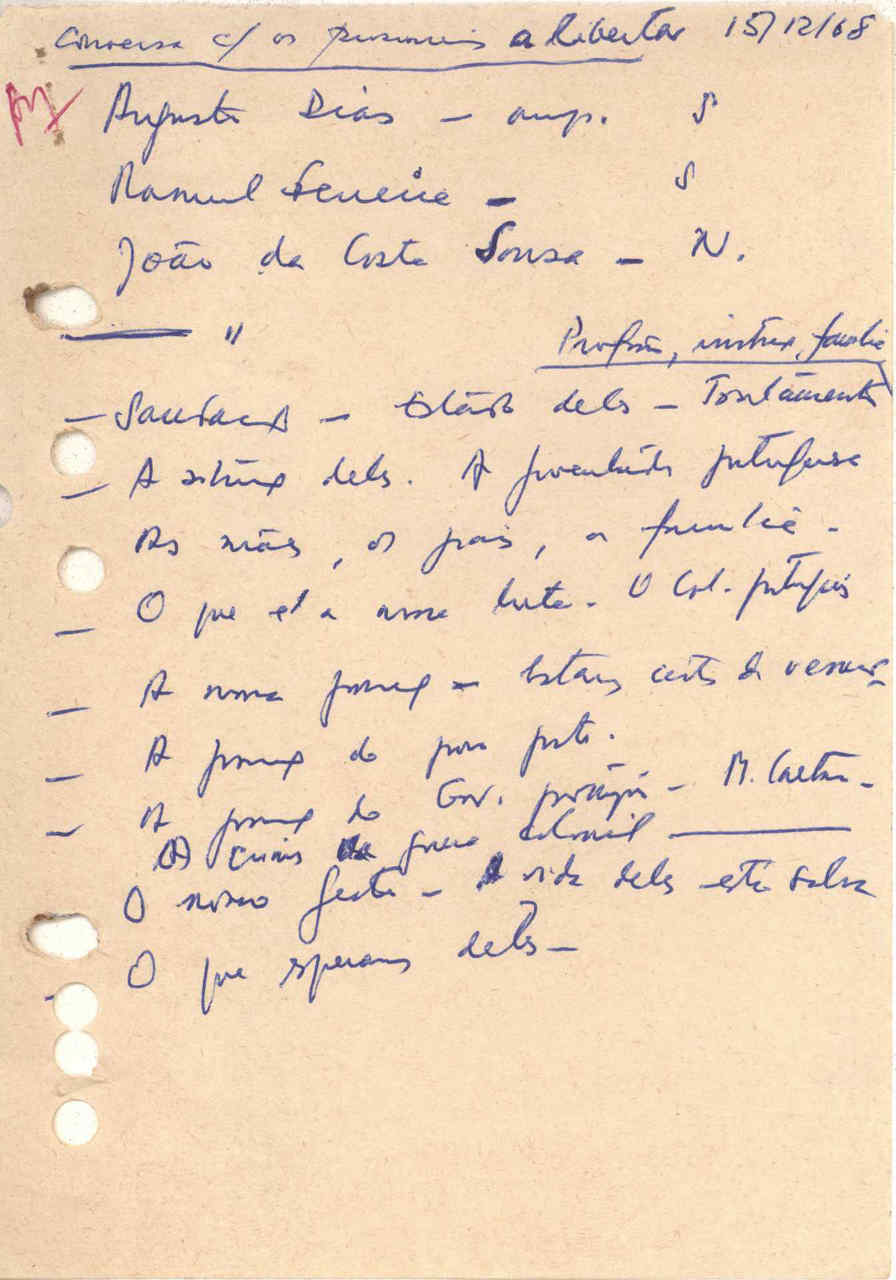 Conversa c/ os prisioneiros a libertar 15/12/68
Augusto Dias — S
Manuel Ferreira — S
João da Costa Sousa — N.
"
família
— Saudação — Estado deles — Tratamento
— A situaç deles. A juventude portuguesa
As mães, os pais, a família -
— O que é a nossa luta. O Col. português
— A nossa posiç — Estamos certos de vencer
— A posiç do povo port.
— A posiç do Gov. português — M. Caetano -
A crise da guerra colonial
O nosso gesto — A vida deles está salva
- O que esperamos deles —